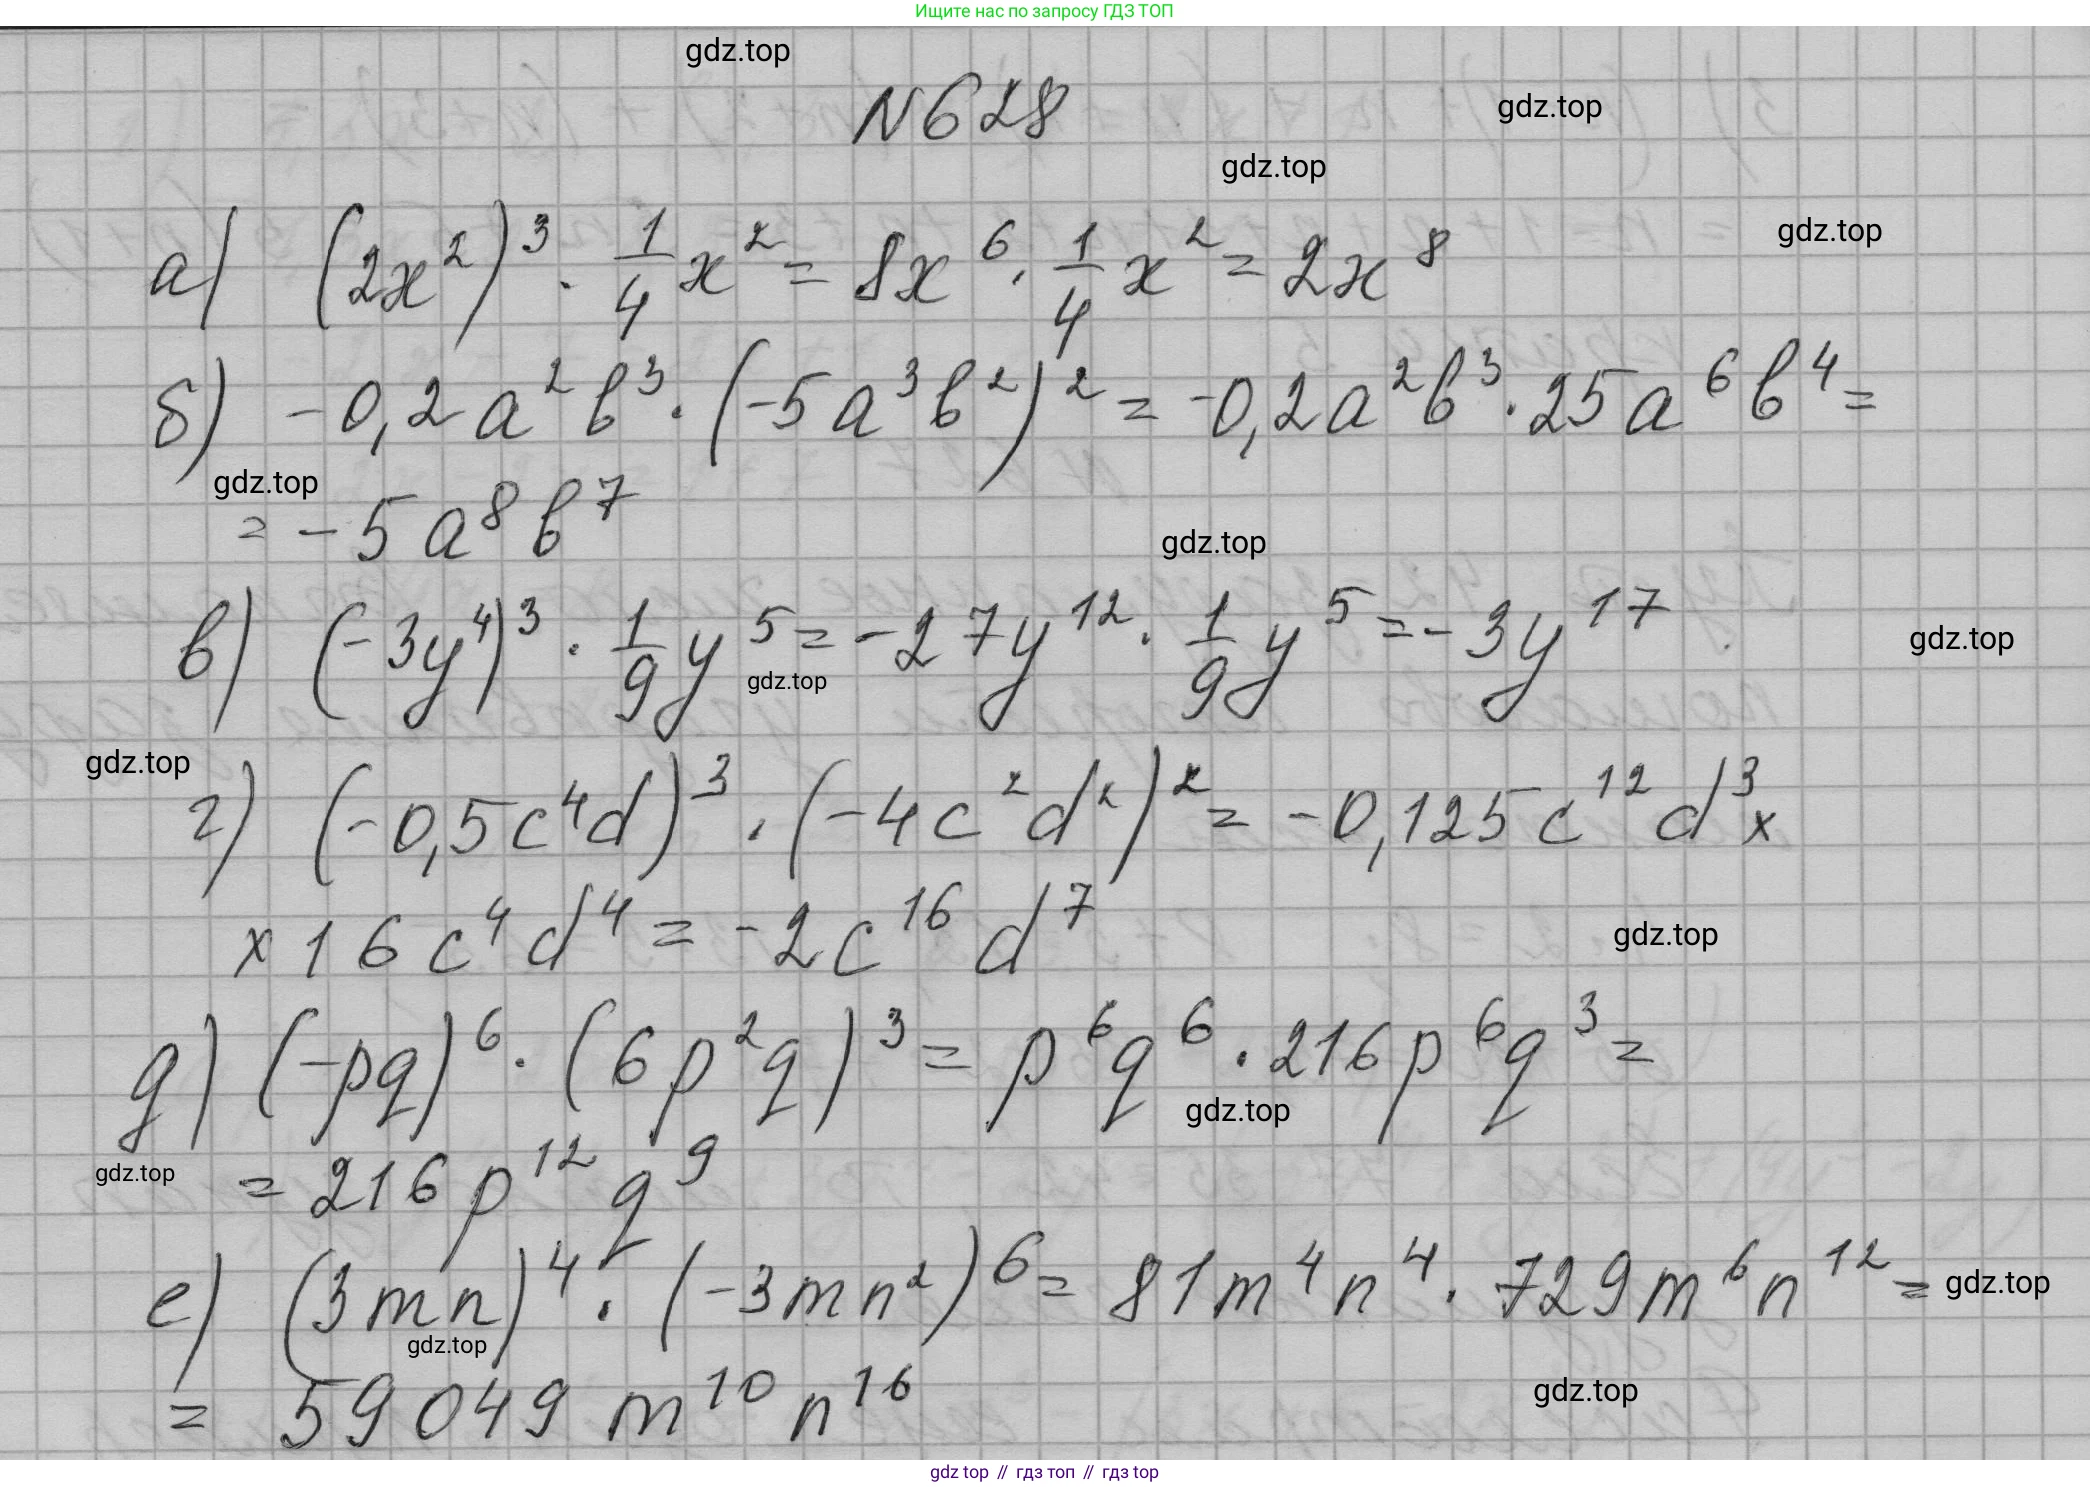 Ищите нас по запросу ГДЗ ТОП
gdz.top
N628
gdz.top
gdz.top
gdz.top
а) (2x²)³ · 1/4 x² = 8x⁶ · 1/4 x² = 2x⁸
б) -0,2a²b³ · (-5a³b²)² = -0,2a²b³ · 25a⁶b⁴ =
gdz.top
= -5a⁸b⁷
gdz.top
в) (-3y⁴)³ · 1/9 y⁵ = -27y¹² · 1/9 y⁵ = -3y¹⁷
gdz.top
gdz.top
gdz.top
г) (-0,5c⁴d)³ · (-4c²d²)² = -0,125c¹²d³ x
x 16c⁴d⁴ = -2c¹⁶d⁷
gdz.top
д) (-pq)⁶ · (6p²q)³ = p⁶q⁶ · 216p⁶q³ =
gdz.top
gdz.top
= 216p¹²q⁹
е) (3mn)⁴ · (-3mn²)⁶ = 81m⁴n⁴ · 729m⁶n¹² =
gdz.top
gdz.top
= 59049m¹⁰n¹⁶
gdz.top
gdz top // гдз топ // гдз top